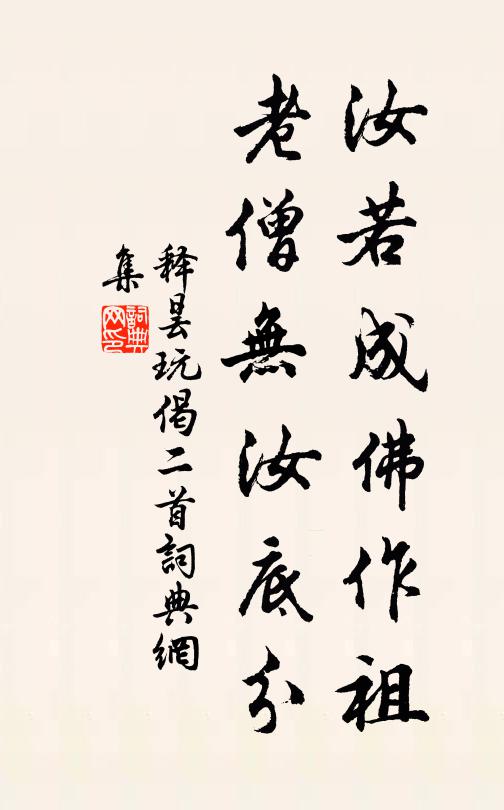 汝若成佛作祖
老僧無汝底分
释昙玩偈二首詞典網
集
詞典
网印